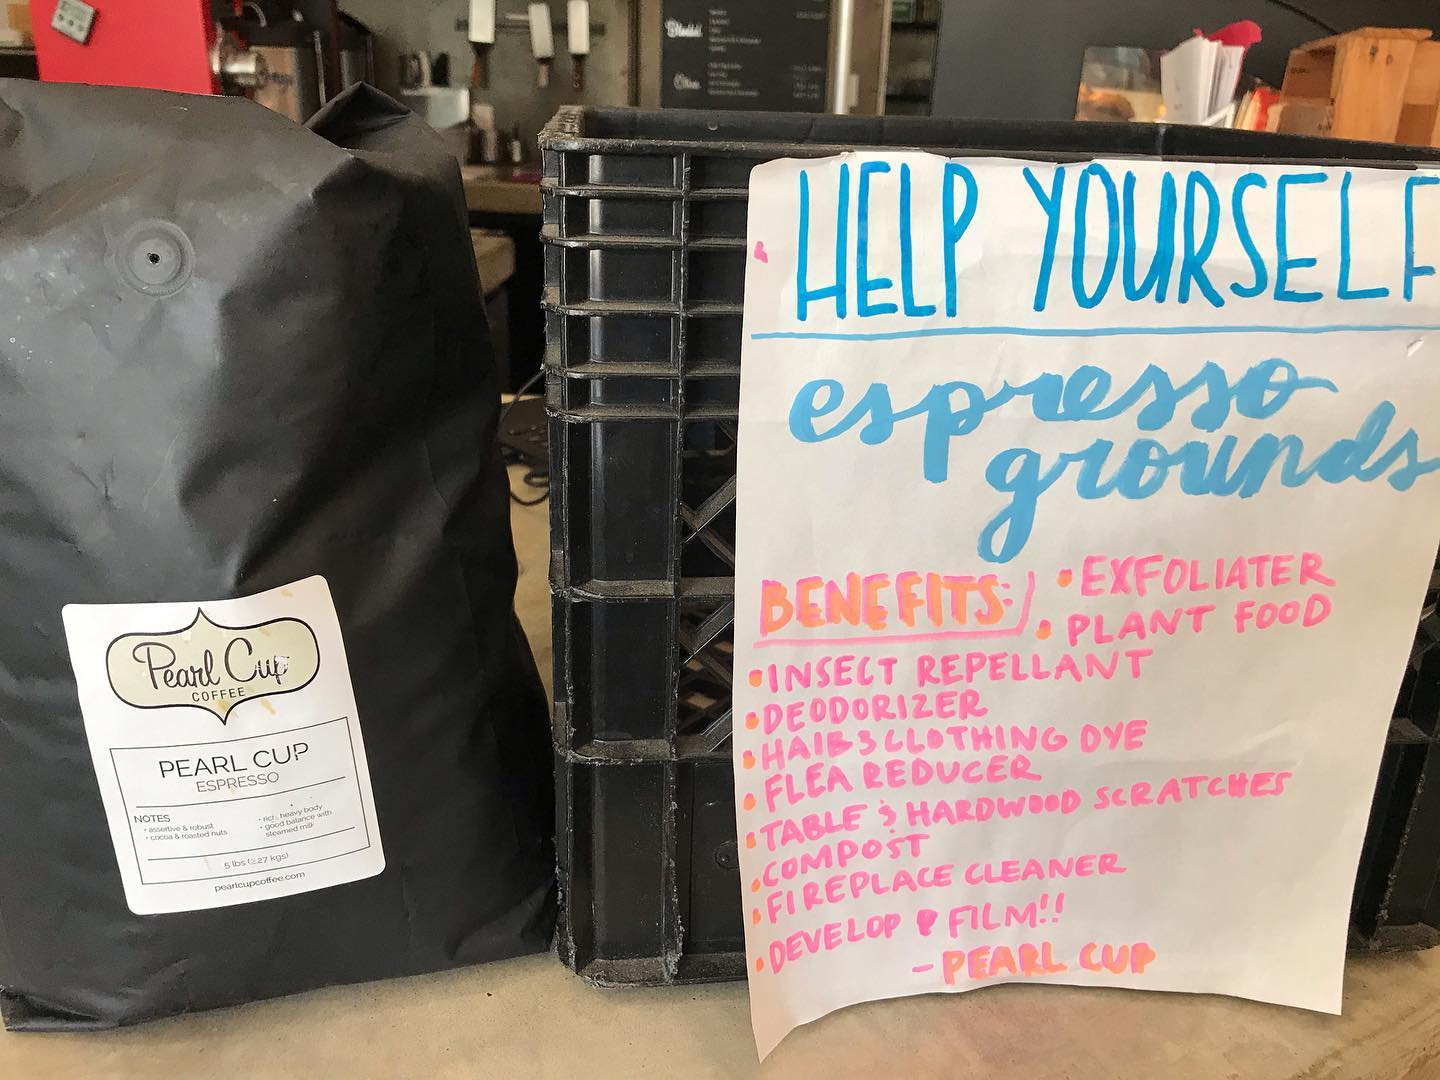 Pearl Cup
COFFEE
PEARL CUP
ESPRESSO
NOTES
• assertive & robust
• cocoa & roasted nuts
• rich, heavy body
• good balance with
steamed milk
5 lbs (2.27 kgs)
pearlcupcoffee.com
HELP YOURSELF
espresso
grounds
BENEFITS:
• EXFOLIATER
• PLANT FOOD
• INSECT REPELLANT
• DEODORIZER
• HAIR & CLOTHING DYE
• FLEA REDUCER
• TABLE & HARDWOOD SCRATCHES
• COMPOST
• FIREPLACE CLEANER
• DEVELOP FILM!!
- PEARL CUP